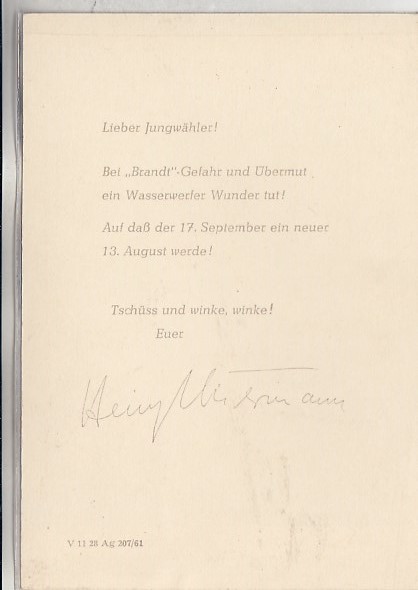 Lieber Jungwähler!
Bei „Brandt"-Gefahr und Übermut
ein Wasserwerfer Wunder tut!
Auf daß der 17. September ein neuer
13. August werde!
Tschüss und winke, winke!
Euer
V 11 28 Ag 207/61